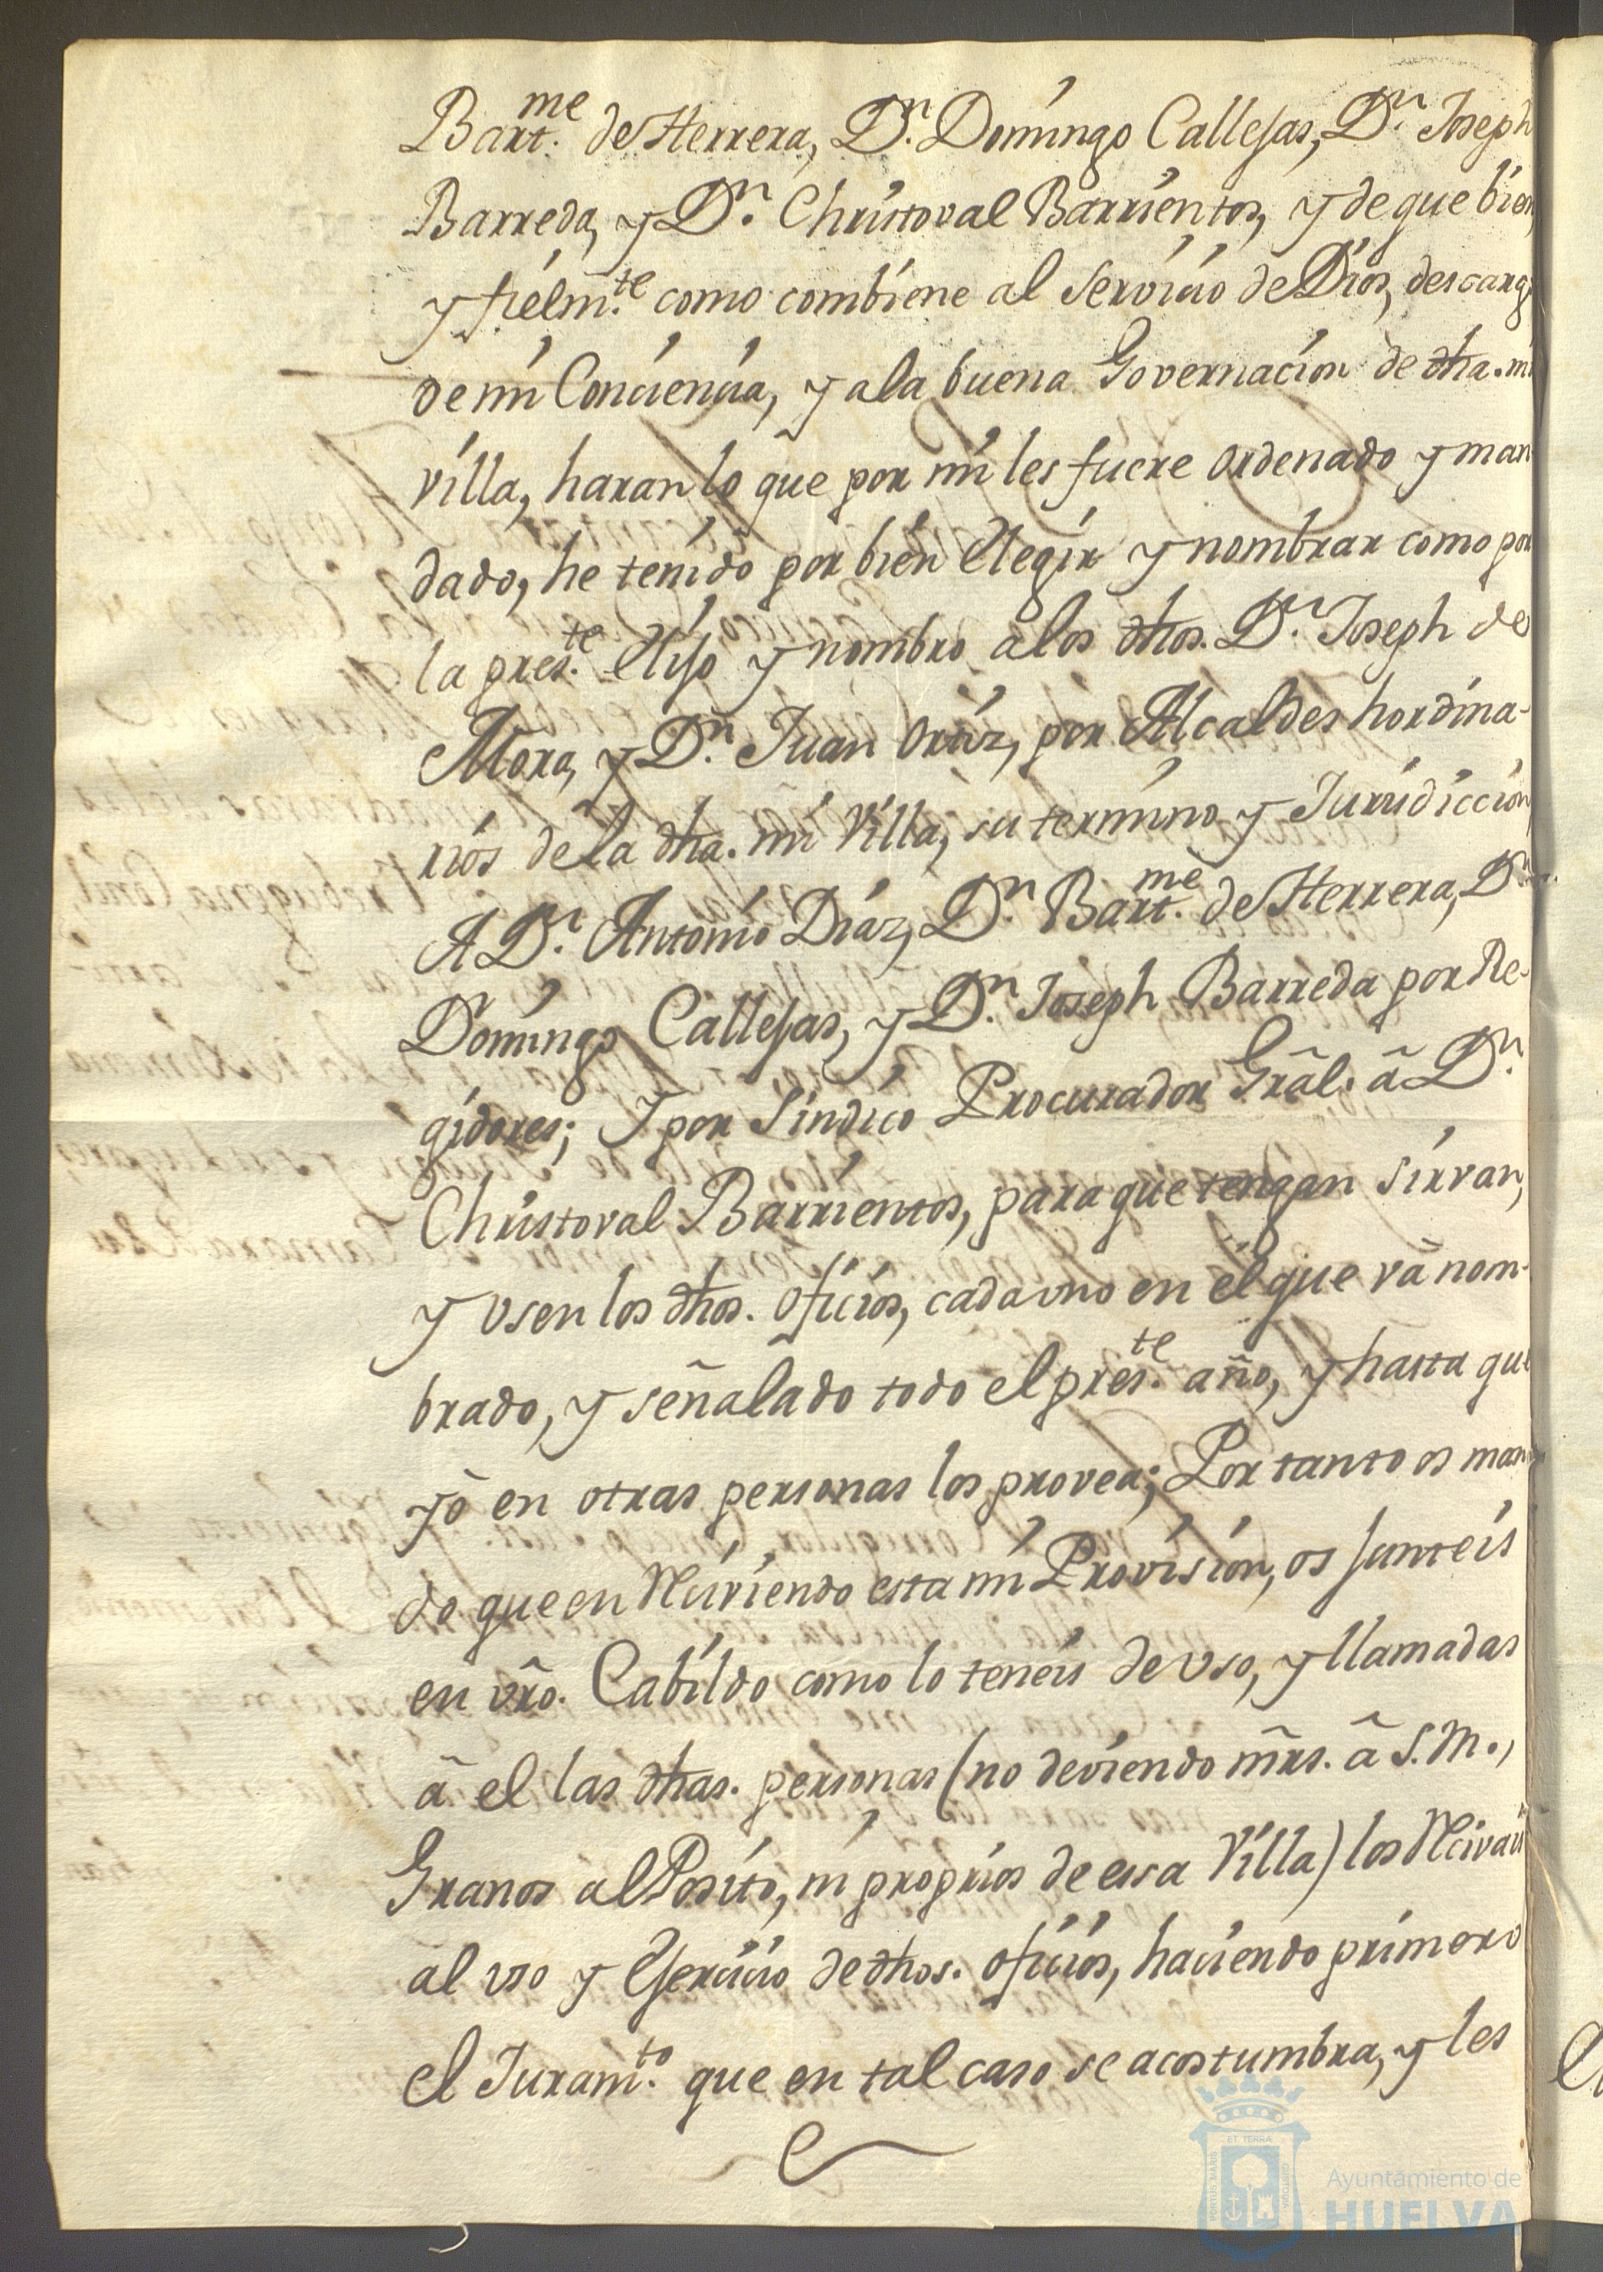 Bart.me de Herrera, Dn. Domingo Callejas, Dn. Joseph
Barreda, y Dn. Christoval Barrientos, y de que bien,
y fielm.te como combiene al servicio de Dios, descarg
de mi Conciencia, y a la buena Governacion de dha. mi
villa, haran lo que por mi les fuere ordenado y man
dado, he tenido por bien elegir y nombrar como por
la pres.te elijo y nombro a los dhos. Dn. Joseph de
Mora, y Dn. Juan Ortiz, por Alcaldes hordina-
rios de la dha. mi Villa, su termino y Jurisdiccion
A Dn. Antonio Diaz, Dn. Bart.me de Herrera, Dn
Domingo Callejas, y Dn. Joseph Barreda por Re-
gidores; Y por Sindico Procurador Grãl. â Dn.
Christoval Barrientos, para que tengan sirvan,
y vsen los dhos. oficios, cada vno en el que vâ nom-
brado, y señalado todo el pres.te año, y hasta que
yô en otras personas los provea; Por tanto os man
do que en Reciviendo esta mi Provision, os junteis
en vr̃o. Cabildo como lo teneis de vso, y llamadas
â el las dhas. personas (no deviendo mr̃s. â S.M.,
Granos al Posito, ni proprios de essa Villa) los Recivais
al vso y Exercicio de dhos. oficios, haciendo primero
el Juram.to que en tal caso se acostumbra, y les
PORTUS MARIS
ET TERRÆ
CUSTODIA
Ayuntamiento de
HUELVA